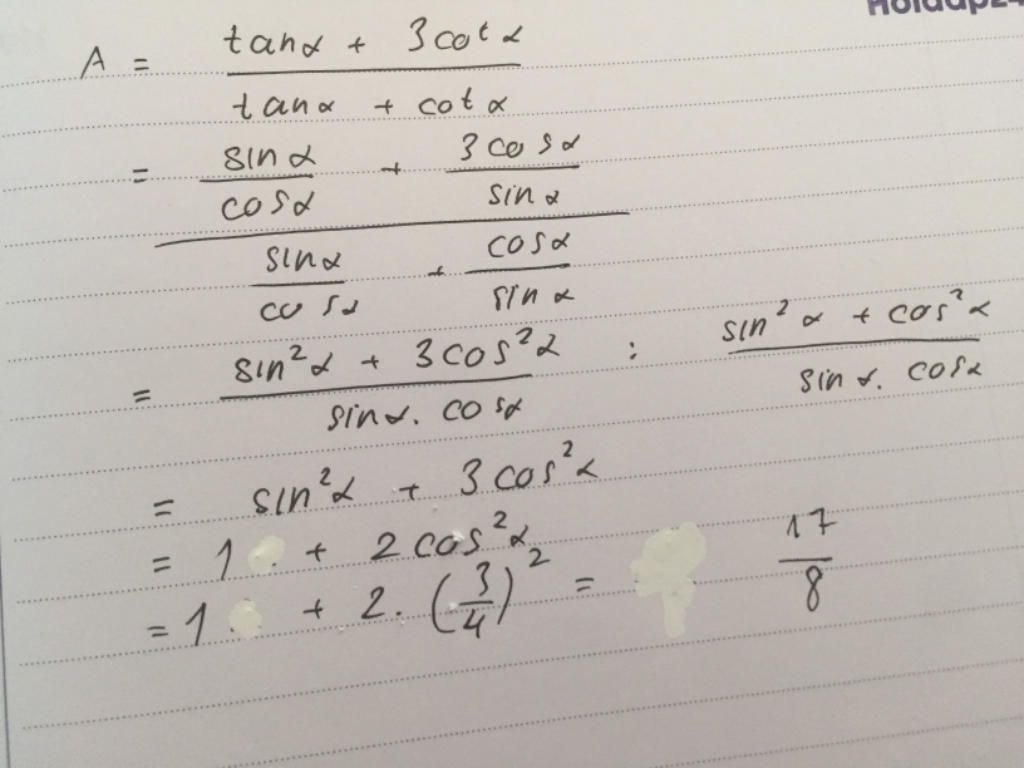 Holdap24
A = (tanα + 3cotα) / (tanα + cotα)
= (sinα/cosα + 3cosα/sinα) / (sinα/cosα + cosα/sinα)
= (sin²α + 3cos²α) / (sinα. cosα) : (sin²α + cos²α) / (sinα. cosα)
= sin²α + 3cos²α
= 1 + 2cos²α
= 1 + 2. (3/4)² = 17/8